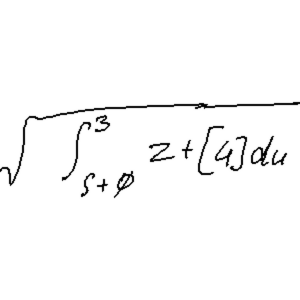 \sqrt{\int_{s+\phi}^{3} z+[u]du}